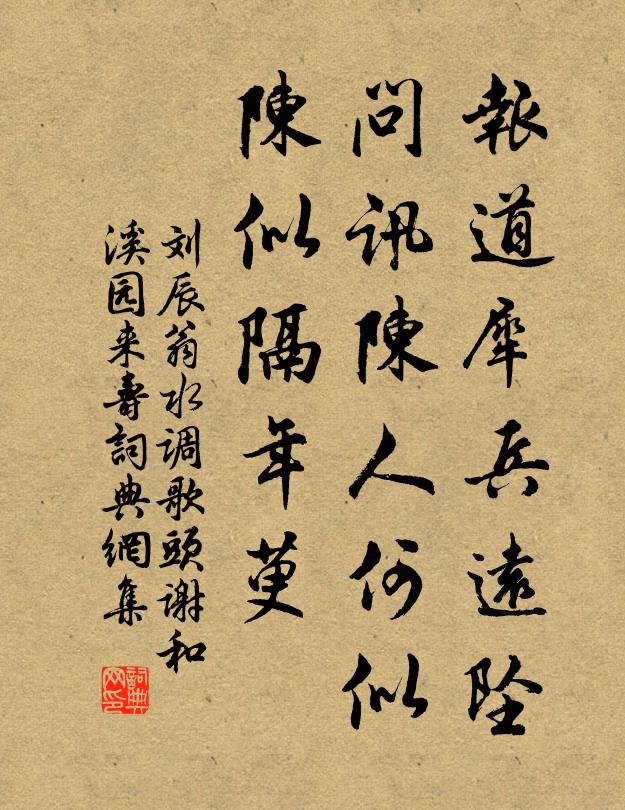 報道犀兵遠坠
問訊陳人何似
陳似隔年萸
刘辰翁水调歌頭谢和
溪园来壽詞典網集
詞典网印